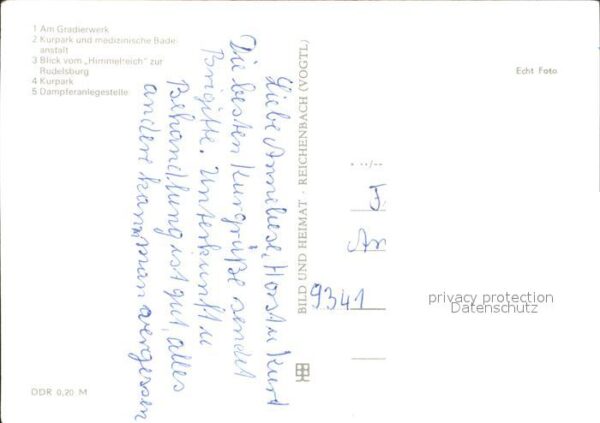 1 Am Gradierwerk
2 Kurpark und medizinische Bade-
anstalt
3 Blick vom „Himmelreich" zur
Rudelsburg
4 Kurpark
5 Dampferanlegestelle
Liebe Anneliese, Horst u Kurt
Die besten Kurgrüße sendet
Brigitte. Unterkunft u
Behandlung ist gut, alles
andere kann man vergessen
BILD UND HEIMAT · REICHENBACH (VOGTL)
Echt Foto
9341
privacy protection
Datenschutz
DDR 0,20 M